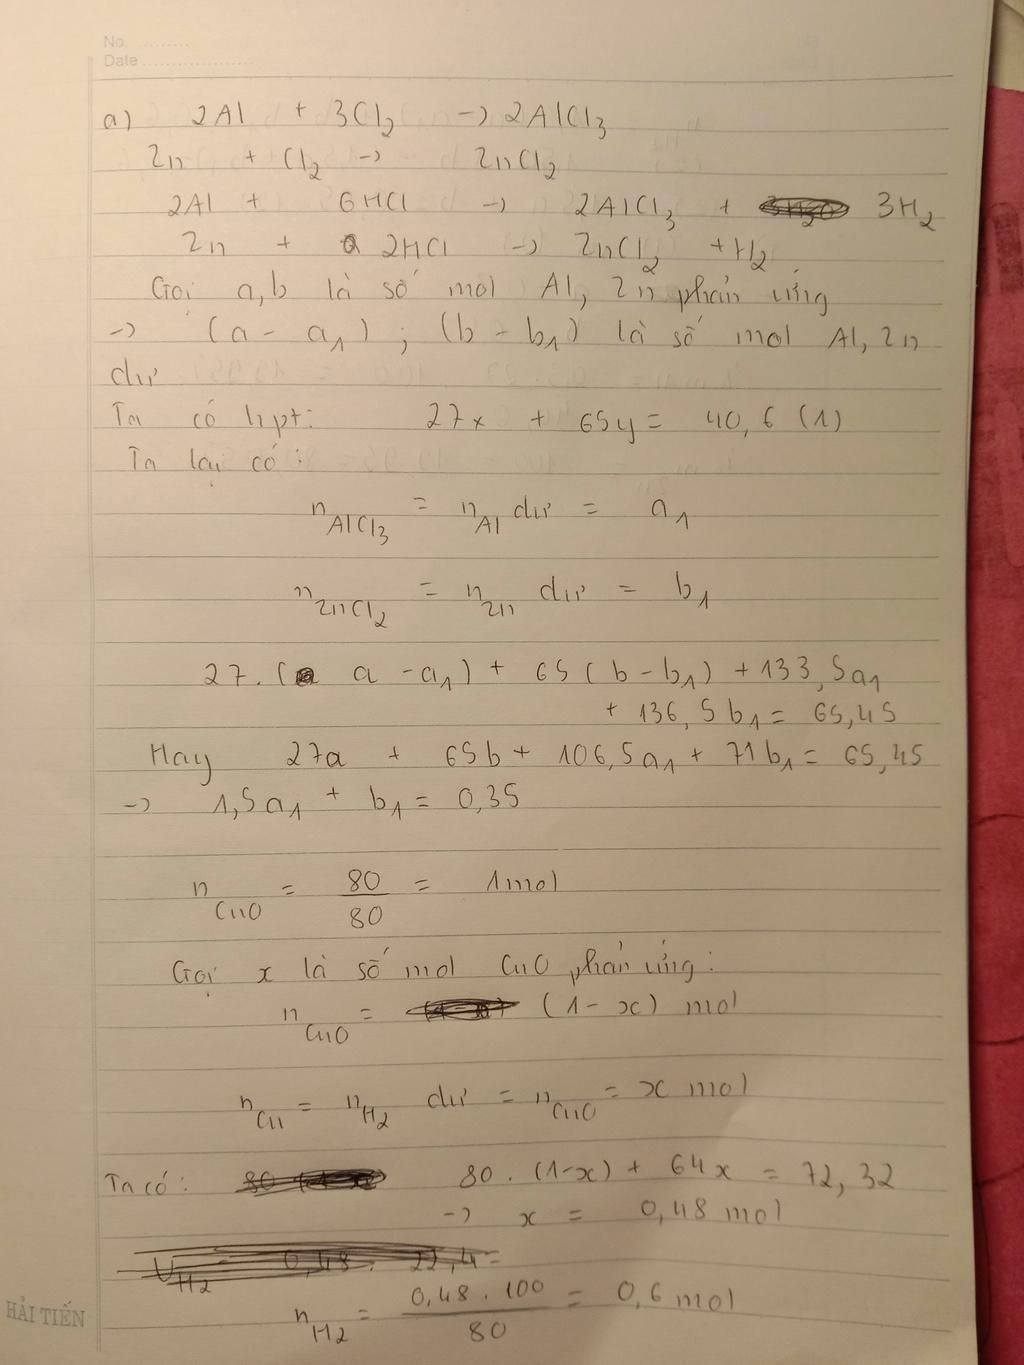 No. ..........
Date ....................
a) 2Al + 3Cl₂ -> 2AlCl₃
Zn + Cl₂ -> ZnCl₂
2Al + 6HCl -> 2AlCl₃ + 3H₂
Zn + 2HCl -> ZnCl₂ + H₂
Gọi a,b là số mol Al, Zn phản ứng
-> (a - a₁) ; (b - b₁) là số mol Al, Zn
dư
Ta có hpt: 27x + 65y = 40,6 (1)
Ta lại có:
n AlCl₃ = n Al dư = a₁
n ZnCl₂ = n Zn dư = b₁
27. ( a - a₁) + 65 ( b - b₁) + 133,5a₁
+ 136,5 b₁ = 65,45
Hay 27a + 65b + 106,5a₁ + 71b₁ = 65,45
-> 1,5a₁ + b₁ = 0,35
n CuO = 80/80 = 1mol
Gọi x là số mol CuO phản ứng:
n CuO = (1 - x) mol
n Cu = n H₂ dư = n CuO = x mol
Ta có: 80 . (1-x) + 64x = 72,32
-> x = 0,48 mol
V H₂ = 0,48 . 22,4 =
n H₂ = 0,48 . 100/80 = 0,6 mol
HẢI TIẾN